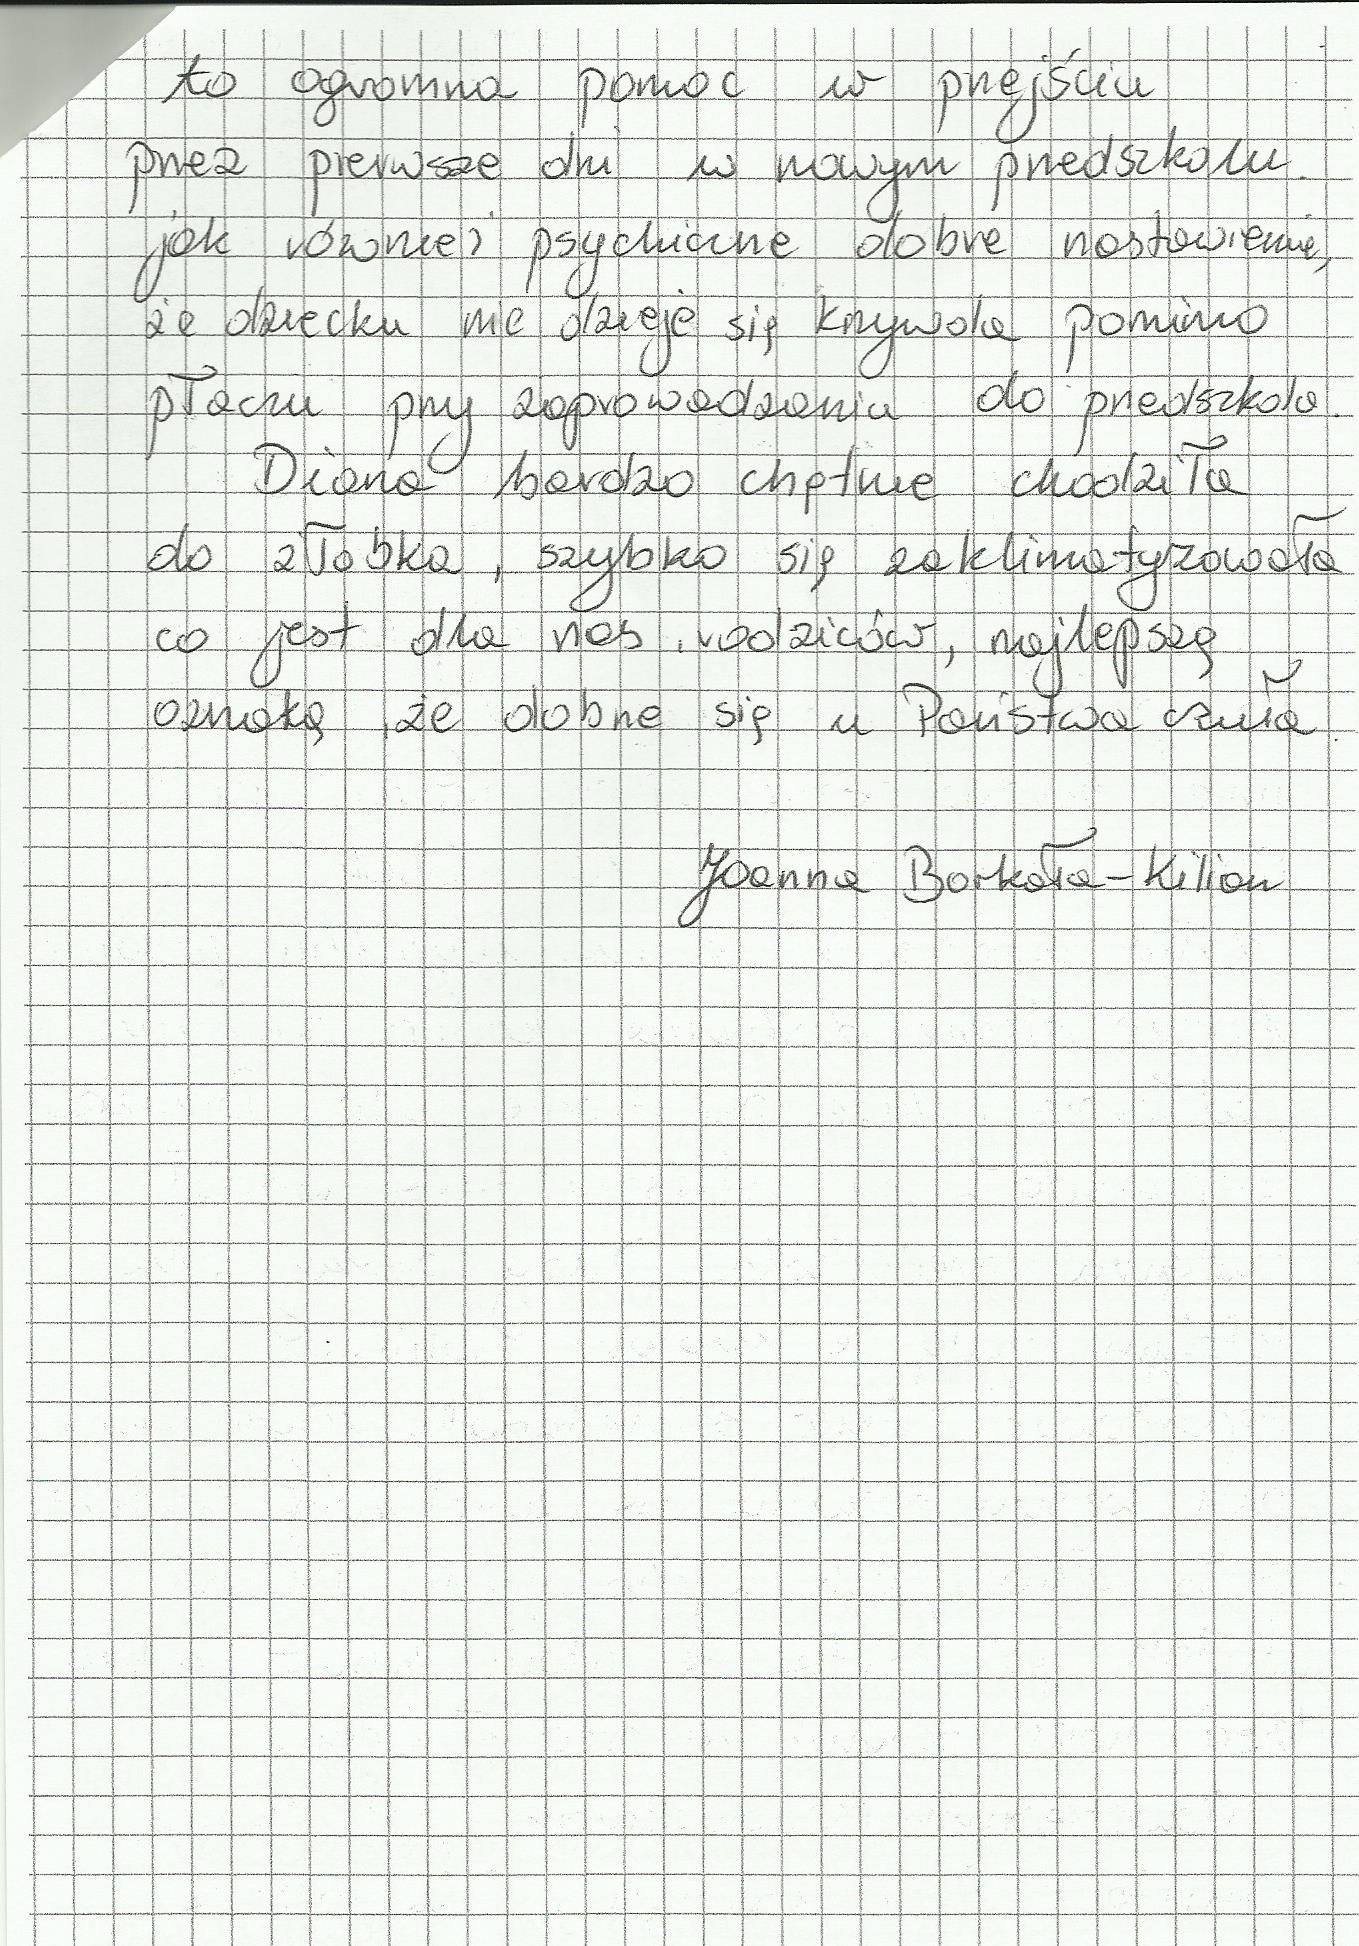 to ogromna pomoc w przejściu
przez pierwsze dni w nowym przedszkolu.
jak również psychiczne dobre nastawienie,
że dziecku nie dzieje się krzywda pomimo
płaczu przy zaprowadzaniu do przedszkola.
Diana bardzo chętnie chodziła
do żłobka, szybko się zaklimatyzowała
co jest dla nas, rodziców, najlepszą
oznaką, że dobrze się u Państwa czuła.
Joanna Borkała-Kilian